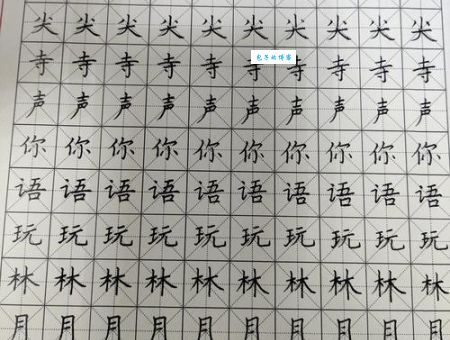 尖 尖 尖 尖 尖 尖 尖 尖 尖 尖
寺 寺 寺 寺 寺 寺 寺 寺 寺 寺
声 声 声 声 声 声 声 声 声 声
你 你 你 你 你 你 你 你 你 你
语 语 语 语 语 语 语 语 语 语
玩 玩 玩 玩 玩 玩 玩 玩 玩 玩
林 林 林 林 林 林 林 林 林 林
月 月 月 月 月 月 月 月 月 月